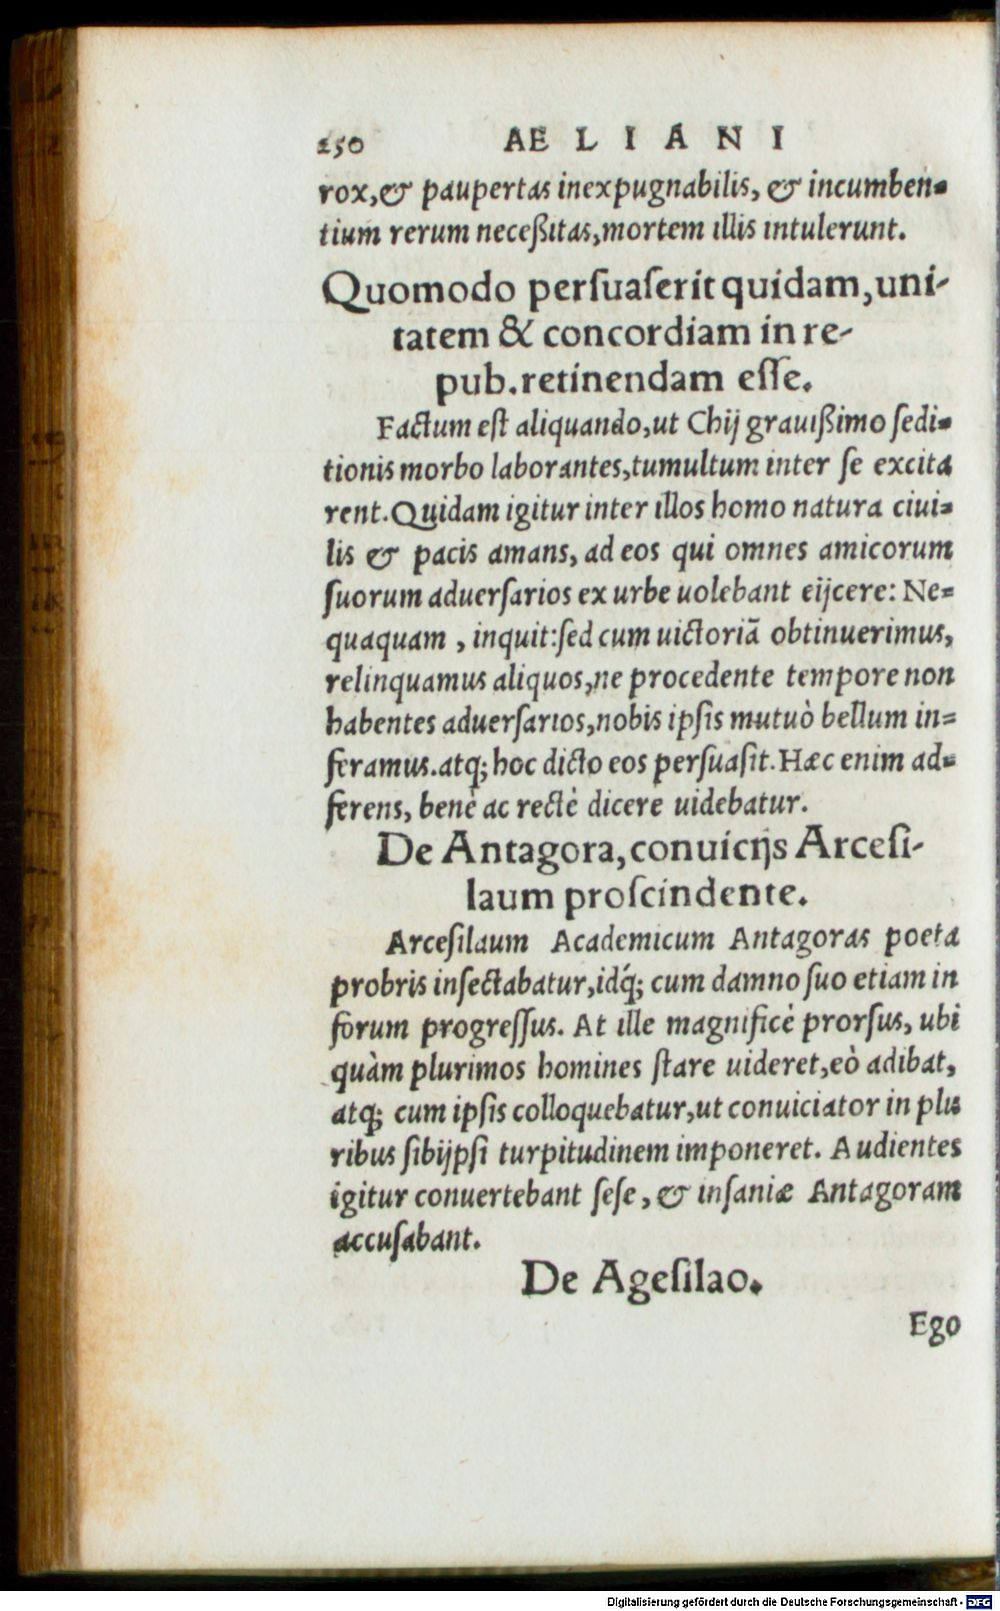 250 AELIANI
rox, & paupertas inexpugnabilis, & incumben-
tium rerum neceßitas, mortem illis intulerunt.
Quomodo persuaserit quidam, uni-
tatem & concordiam in re-
pub. retinendam esse.
Factum est aliquando, ut Chij grauißimo sedi-
tionis morbo laborantes, tumultum inter se excita
rent. Quidam igitur inter illos homo natura ciui-
lis & pacis amans, ad eos qui omnes amicorum
suorum aduersarios ex urbe uolebant eijcere: Ne-
quaquam, inquit: sed cum uictoriã obtinuerimus,
relinquamus aliquos, ne procedente tempore non
habentes aduersarios, nobis ipsis mutuò bellum in-
feramus. atq; hoc dicto eos persuasit. Hæc enim ad-
ferens, benè ac rectè dicere uidebatur.
De Antagora, conuicijs Arcesi-
laum proscindente.
Arcesilaum Academicum Antagoras poeta
probris insectabatur, idq́; cum damno suo etiam in
forum progressus. At ille magnificè prorsus, ubi
quàm plurimos homines stare uideret, eò adibat,
atq; cum ipsis colloquebatur, ut conuiciator in plu
ribus sibijpsi turpitudinem imponeret. Audientes
igitur conuertebant sese, & insaniæ Antagoram
accusabant.
De Agesilao.
Ego
Digitalisierung gefördert durch die Deutsche Forschungsgemeinschaft - DFG